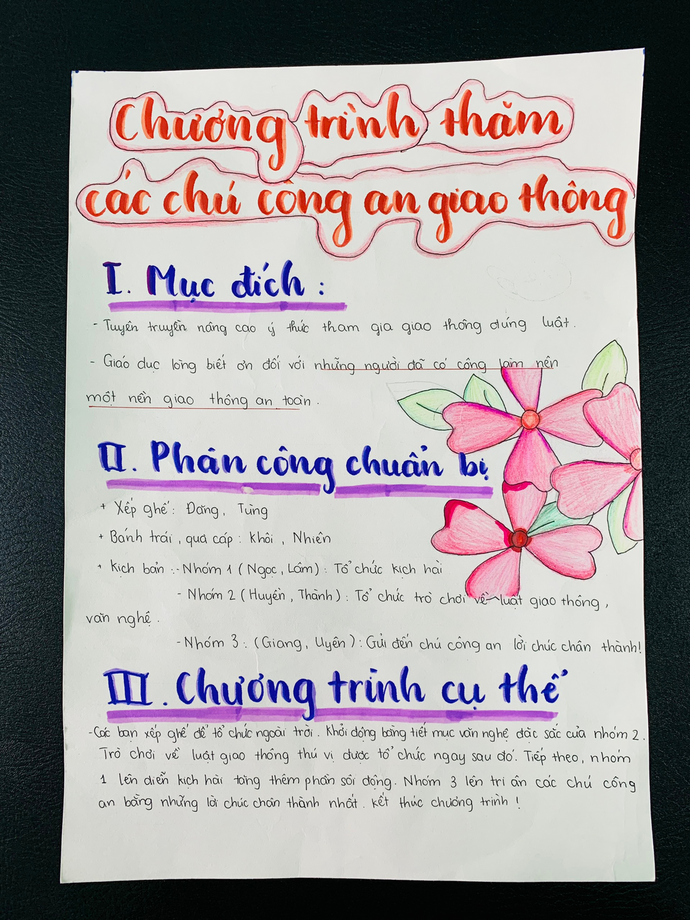 Chương trình thăm
các chú công an giao thông
I. Mục đích :
- Tuyên truyền nâng cao ý thức tham gia giao thông đúng luật.
- Giáo dục lòng biết ơn đối với những người đã có công làm nên
một nền giao thông an toàn.
II. Phân công chuẩn bị
+ Xếp ghế : Đăng, Tùng
+ Bánh trái, quà cáp : Khôi, Nhiên
+ Kịch bản :- Nhóm 1 (Ngọc, Lâm) : Tổ chức kịch hài
- Nhóm 2 (Huyền, Thành) : Tổ chức trò chơi về luật giao thông,
văn nghệ.
- Nhóm 3 : (Giang, Uyên) : Gửi đến chú công an lời chúc chân thành!
III. Chương trình cụ thể
- Các bạn xếp ghế để tổ chức ngoài trời. Khởi động bằng tiết mục văn nghệ đặc sắc của nhóm 2.
Trò chơi về luật giao thông thú vị được tổ chức ngay sau đó. Tiếp theo, nhóm
1 lên diễn kịch hài tăng thêm phần sôi động. Nhóm 3 lên tri ân các chú công
an bằng những lời chúc chân thành nhất. Kết thúc chương trình !